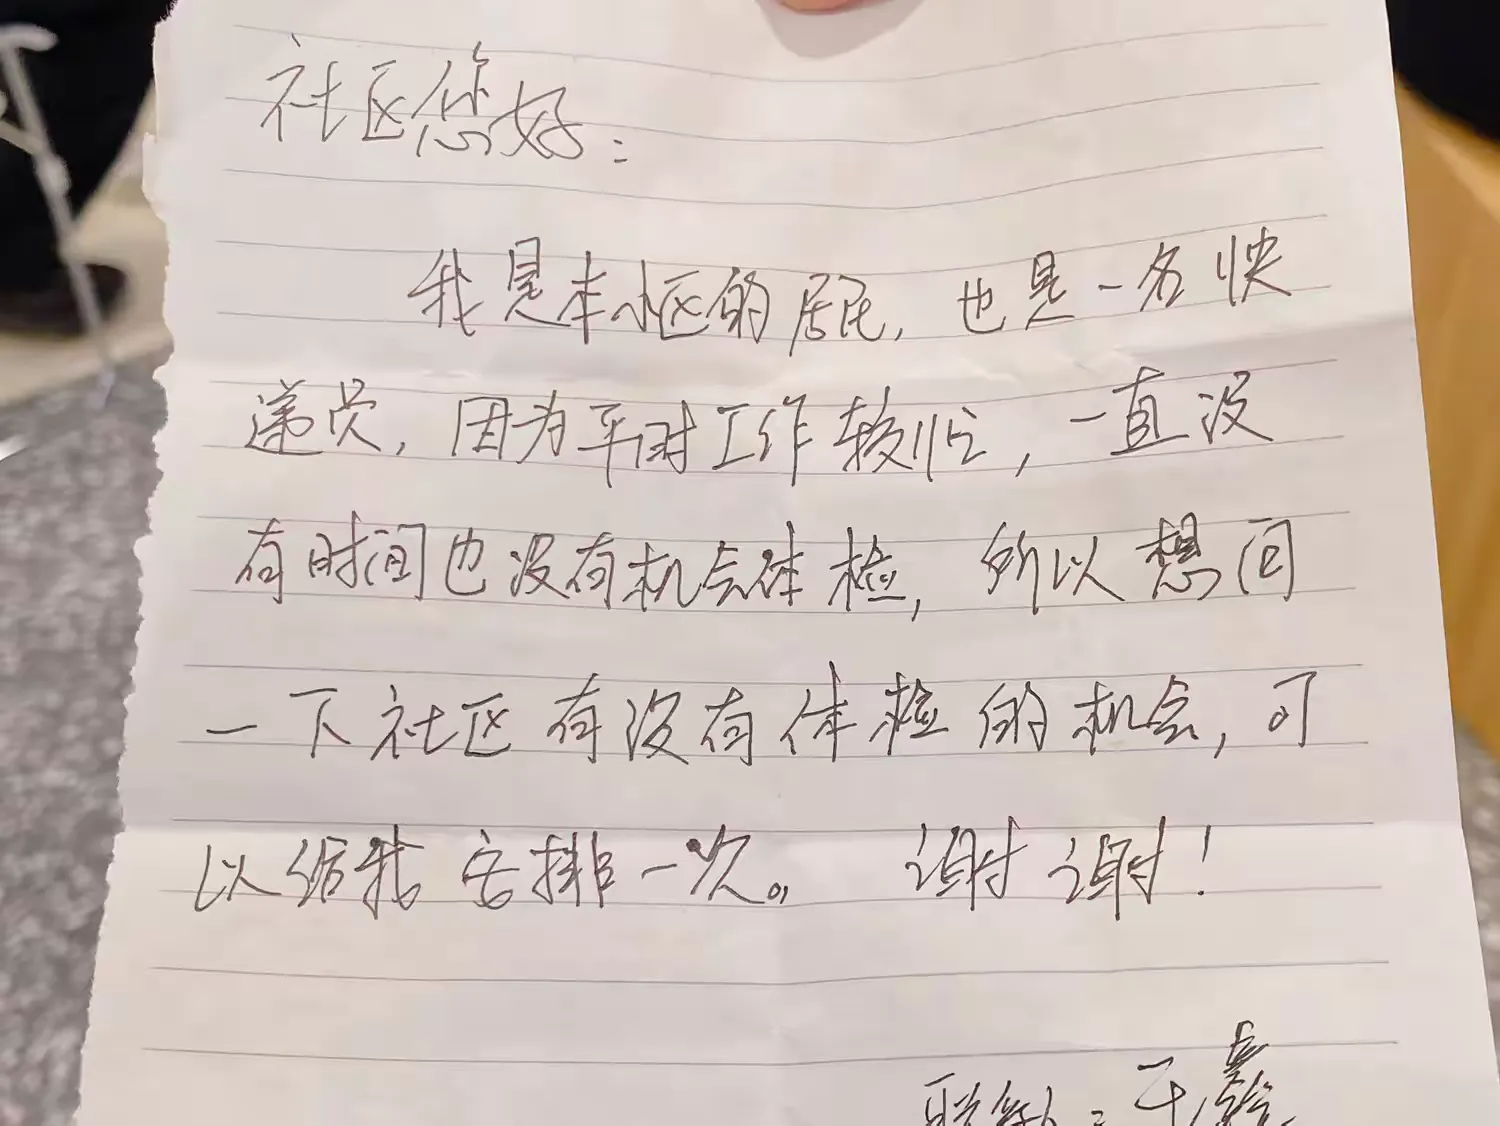 社区您好：
我是本小区的居民，也是一名快
递员，因为平时工作较忙，一直没
有时间也没有机会体检，所以想问
一下社区有没有体检的机会，可
以给我安排一次。谢谢！
联系人：王